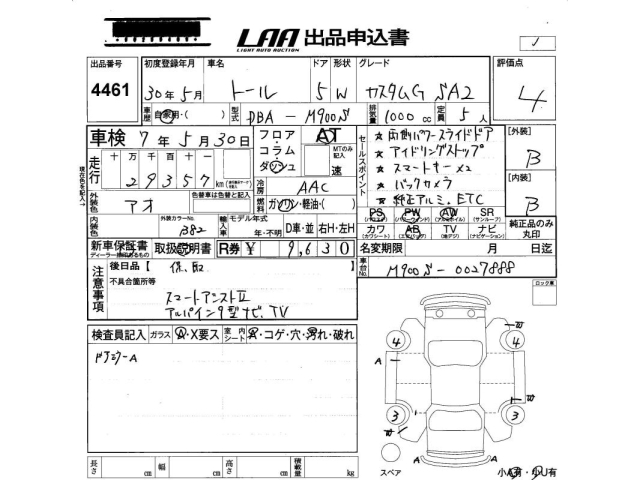 LAA 出品申込書
LIGHT AUTO AUCTION
出品番号 初度登録年月 車名 ドア 形状 グレード 評価点
4461 30年5月 トール 5 W カスタムG SA2 4
車歴 自家用・( ) 型式 DBA - M900S 排気量 1000 cc 定員 5 人
車検 7年5月30日 フロア・コラム・ダッシュ AT
MTのみ記入 速
走行 十万千百十一
29357 km
冷房 AAC
燃料 ガソリン・軽油・( )
セールスポイント
★両側パワースライドドア
★アイドリングストップ
★スマートキー×2
★バックカメラ
★純正アルミ、ETC
[外装] B
[内装] B
現在色を記入→
外装色 アオ 色替車は色替と記入
外装カラーNo. B82
輸入車 モデル年式 年・不明 D車・並 右H・左H
PS PW AW SR
カワ AB TV ナビ
純正品のみ丸印
新車保証書 取扱説明書 R券 ¥ 9,630
ディーラー捺印あるもの
名変期限 月 日迄
車台No. M900S-0027888
注意事項 後日品【 保、取 】
不具合箇所等
スマートアシストⅡ
アルパイン9型ナビ、TV
ロック車
検査員記入 ガラス A・X要ス 室内シート A・コゲ・穴・汚れ・破れ
ドアミラーA
4 4
W
A
A
W
3 3
W
A
スペア
小A有・小U有
長さ cm 幅 cm 高さ cm 積載量 kg